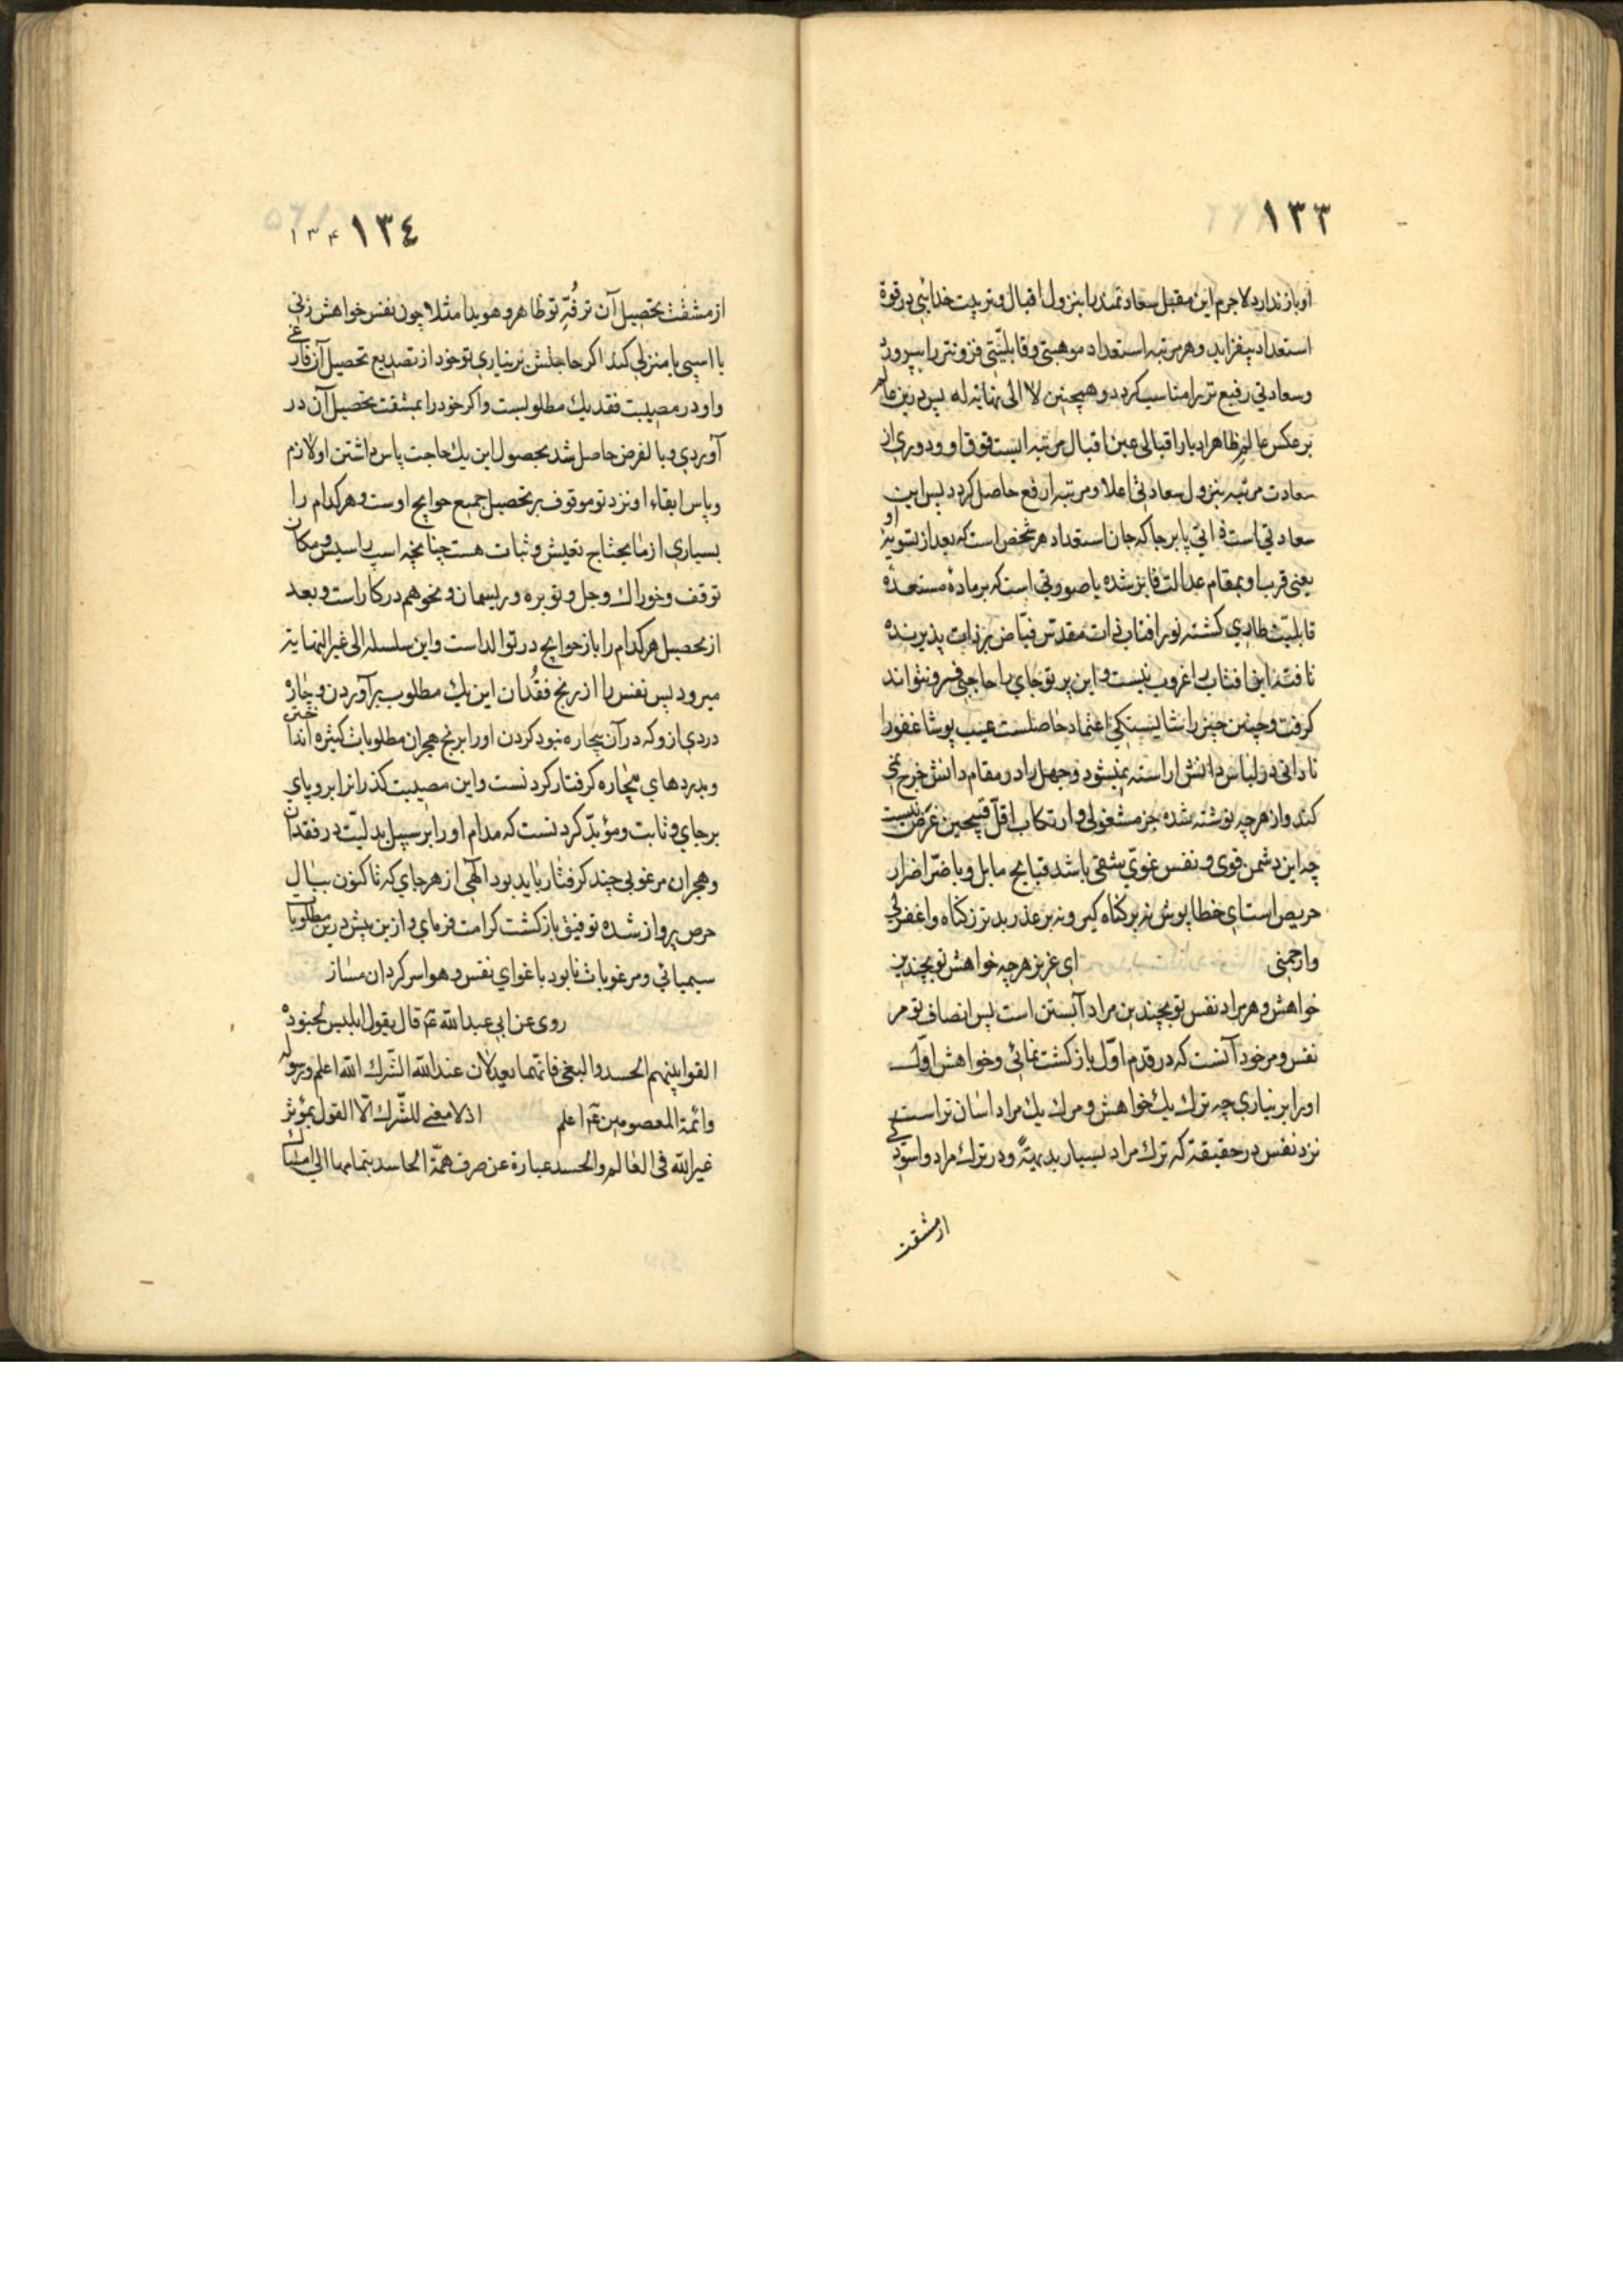 ١٣٣
او باز ندارد لاجرم این مقبل سعادتمند را بنزول اقبال و تربیت خدایی در قوة
استعداد بیفزاید و هر مرتبه استعداد موهبتی و قابلیتی فزونتر را بپرورد
وسعادتی رفیع تر را مناسب کردد و همچنین لا الی نهایة له پس درین عالم
بر عکس عالم ظاهر ادبار اقبالی عین اقبال مرتبه ایست فوق او و دوری از
سعادت مرتبه بنزول سعادتی اعلا و مرتبه ارفع حاصل کردد پس این
سعادتی است ذاتی پا بر جا که جان استعداد هر شخص است که بعد از تسویۀ او
یعنی قرب او بمقام عدالت فایز شده یا صورتی است که بر مادۀ مستعدۀ
قابلیت طاری کشته نور افتاب ذات مقدس فیاض بر ذات پذیرنده
تافته این افتاب را غروب نیست و این پرتو جای را حاجبی فرو نتواند
کرفت و چنین چیز را شایستکی اعتماد حاصلست عیب پوشا غفورا
نادانی در لباس دانش اراسته نمیشود و جهل را در مقام دانش خرج نمی
کند و از هرچه نوشته شده جز مشغولی و ارتکاب اقل قبیحین غرض نیست
چه این دشمن قوی و نفس غوی شقی باشد قبایح مایل و باضر اضرار
حریص است ای خطاپوش نه بر کناه کیر و نه بر عذر بدتر ز کناه واغفرلی
وارحمنی ای عزیز هرچه خواهش تو بچندین
خواهش و هر مراد نفس تو بچندین مراد آبستن است پس انصاف تو مر
نفس و مر خود آنست که در قدم اول بازکشت نمائی و خواهش اول
اورا بر نیاری چه ترک یک خواهش و مرک یک مراد اسان تر است
نزد نفس در حقیقته که ترک مراد بسیار بدیهیةً و در ترک مراد و اسودکی
از مشقت
١٣٤
۱۳۴
از مشقت تحصیل آن ترفّه تو ظاهر و هویدا مثلا چون نفس خواهش زنی
یا اسپی یا منزلی کند اکر حاجتش بر نیاری تو خود از تصدیع تحصیل آن فارغ
و او در مصیبت فقد یک مطلوبست و اکر خود را بمشقت تحصیل آن در
آوردی و بالفرض حاصل شد بحصول این یک حاجت پاس داشتن او لازم
و پاس ابقاء او نزد تو موقوف بر تحصیل جمیع حوایج اوست و هر کدام را
بسیاری از مایحتاج تعیش و ثبات هست چنانچه اسپ را سیس و مکان
توقف و خوراک و جل و توبره و ریسمان و نحو هم در کار است و بعد
از تحصیل هر کدام را باز حوایج در توالد است و این سلسله الی غیر النهایة
میرود پس نفس را از رنج فقدان این یک مطلوب بر آوردن و چارۀ
دردی ازو که در آن بیچاره نبود کردن اورا برنج هجران مطلوبات کثیره انداختن
و بدردهای بیچاره کرفتار کردنست و این مصیبت کذرانرا برو پای
برجای و ثابت و مؤبّد کردنست که مدام اورا بر سبیل بدلیّت در فقدان
و هجران مرغوبی چند کرفتار باید بود الهی از هر جای که تا کنون ببال
حرص پرواز شده توفیق بازکشت کرامت فرمای و ازین پیش درین مطلوبات
سیمیائی و مرغوبات نابود باغوای نفس و هوا سرکردان مساز
روی عن ابی عبدالله عم قال یقول ابلیس لجنوده
القوا بینهم الحسد والبغی فانهما یعدلان عند الله الشّرک الله اعلم ورسوله
وائمة المعصومین عم اعلم اذ لا معنی للشّرک الّا القول بمؤثر
غیر الله فی العالم والحسد عبارة عن صرف همّة الحاسد بتمامها الی امساک